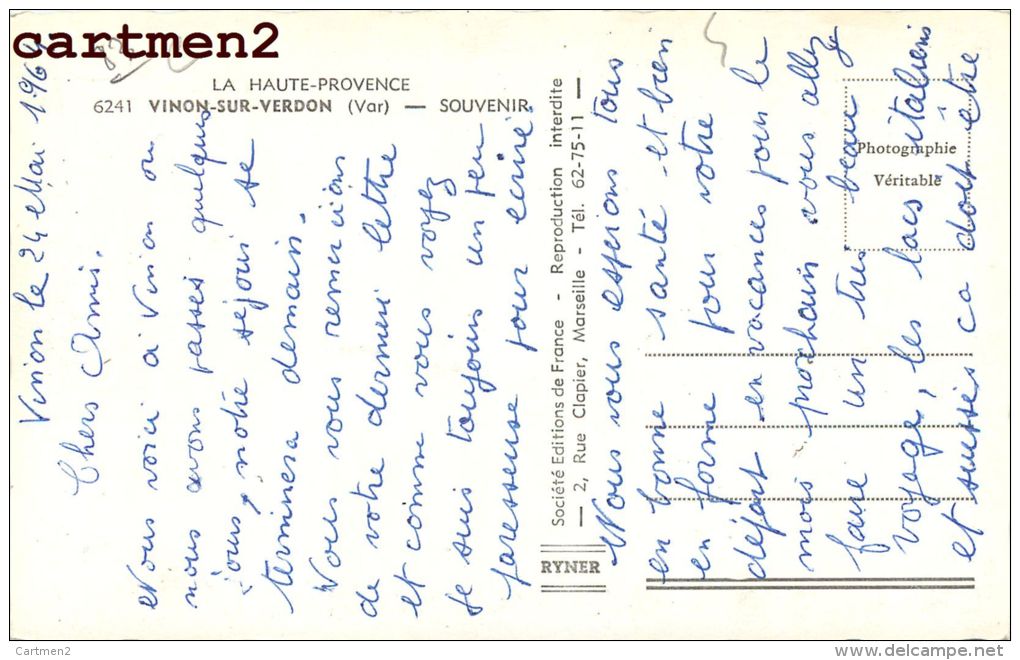 cartmen2
83
LA HAUTE-PROVENCE
6241 VINON-SUR-VERDON (Var) — SOUVENIR.
Vinon le 24 Mai 1964
Chers Amis.
Nous voici à Vinon ou
nous avons passés quelques
jours, notre séjour se
terminera demain.
Nous vous remercions
de votre dernière lettre
et comme vous voyez
je suis toujours un peu
paresseuse pour écrire.
Société Editions de France - Reproduction interdite
— 2, Rue Clapier, Marseille - Tél. 62-75-11 —
RYNER
Nous vous espérons tous
en bonne santé et bien
en forme pour votre
départ en vacances pour le
mois prochain vous allez
faire un très beau
voyage, les lacs italiens
et suisses ca doit etre
Photographie
Véritable
Cartmen2
http://www.delcampe.net